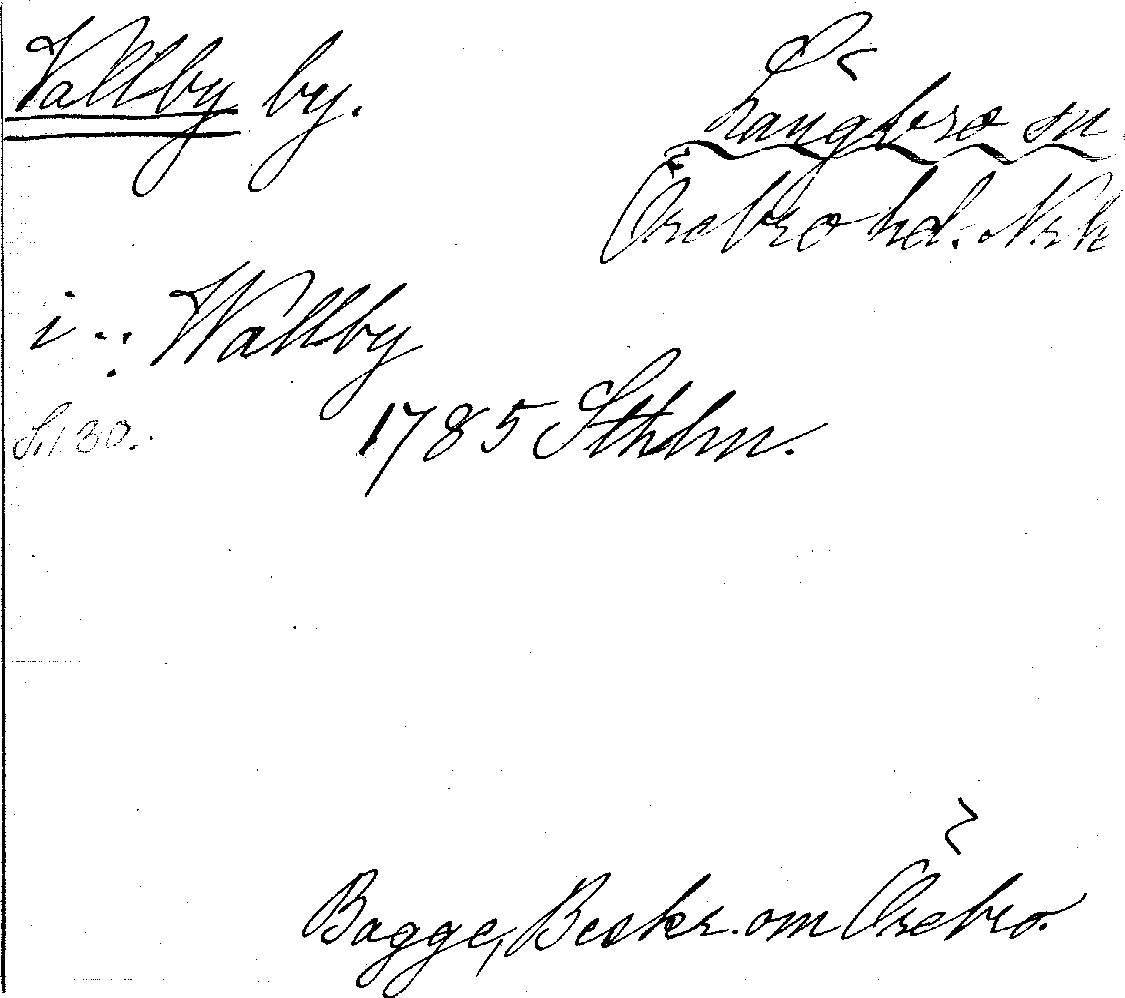 Vallby by.
Långbro sn
Örebro hd. Nrk
i .. : Wallby
S. 130. 1785 Sthlm.
Bagge, Beskr. om Örebro.